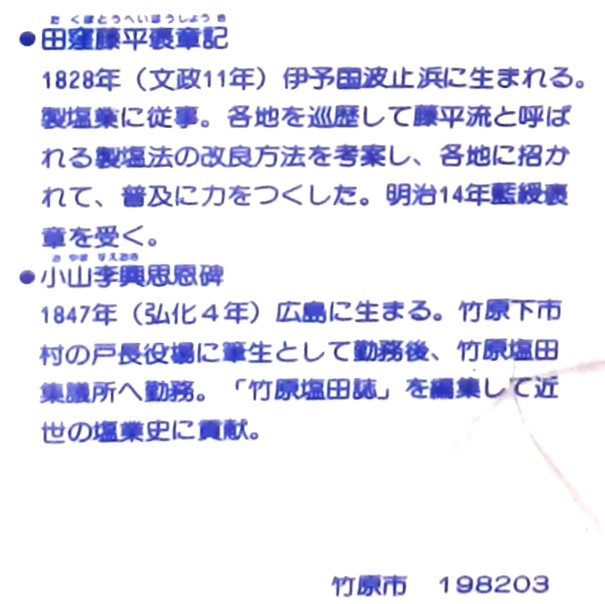 たくぼとうへいほうしようき
●田窪藤平褒章記
1828年（文政11年）伊予国波止浜に生まれる。
製塩業に従事。各地を巡歴して藤平流と呼ば
れる製塩法の改良方法を考案し、各地に招か
れて、普及に力をつくした。明治14年藍綬褒
章を受く。
おやますえおき
●小山李興思恩碑
1847年（弘化４年）広島に生まる。竹原下市
村の戸長役場に筆生として勤務後、竹原塩田
集議所へ勤務。「竹原塩田誌」を編集して近
世の塩業史に貢献。
竹原市　198203